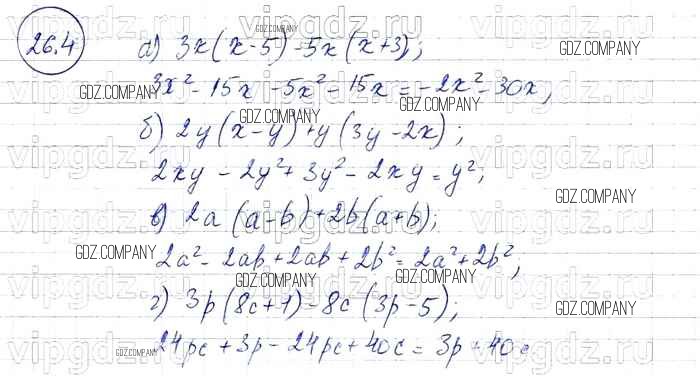 26.4
а) 3x(x-5)-5x(x+3);
3x²-15x-5x²-15x=-2x²-30x,
б) 2y(x-y)+y(3y-2x);
2xy-2y²+3y²-2xy=y²;
в) 2a(a-b)+2b(a+b);
2a²-2ab+2ab+2b²=2a²+2b²;
г) 3p(8c+1)-8c(3p-5);
24pc+3p-24pc+40c=3p+40c
vipgdz.ru
vipgdz.ru
vipgdz.ru
vipgdz.ru
vipgdz.ru
vipgdz.ru
vipgdz.ru
vipgdz.ru
vipgdz.ru
vipgdz.ru
GDZ.COMPANY
GDZ.COMPANY
GDZ.COMPANY
GDZ.COMPANY
GDZ.COMPANY
GDZ.COMPANY
GDZ.COMPANY
GDZ.COMPANY
GDZ.COMPANY
GDZ.COMPANY
GDZ.COMPANY
GDZ.COMPANY